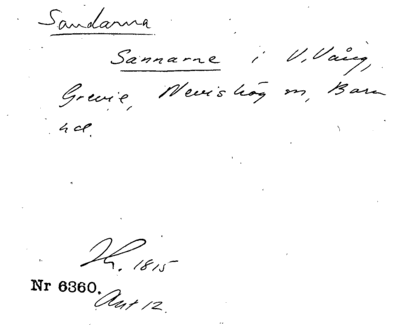 Sandarna
Sannarne i V. Vång,
Grevie, Nevishög m, Bara
hd.
Th. 1815
Nr 6360.
Ant 12.